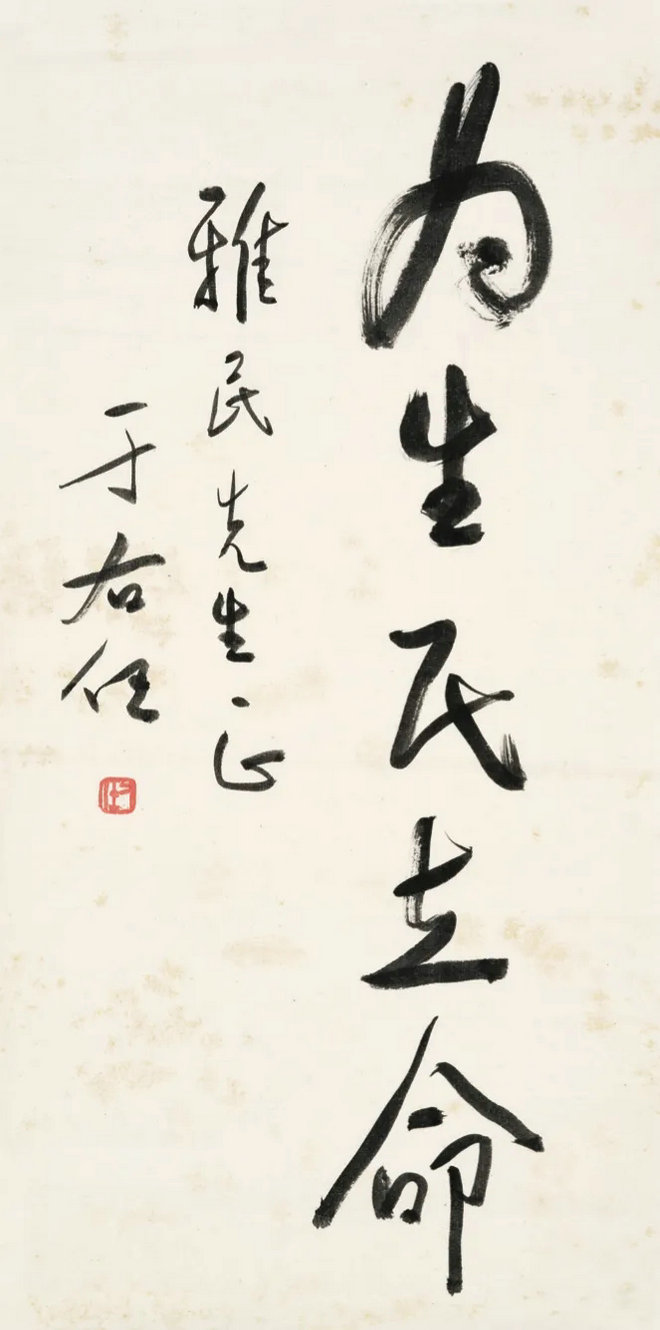 为生民立命
雅民先生正
于右任